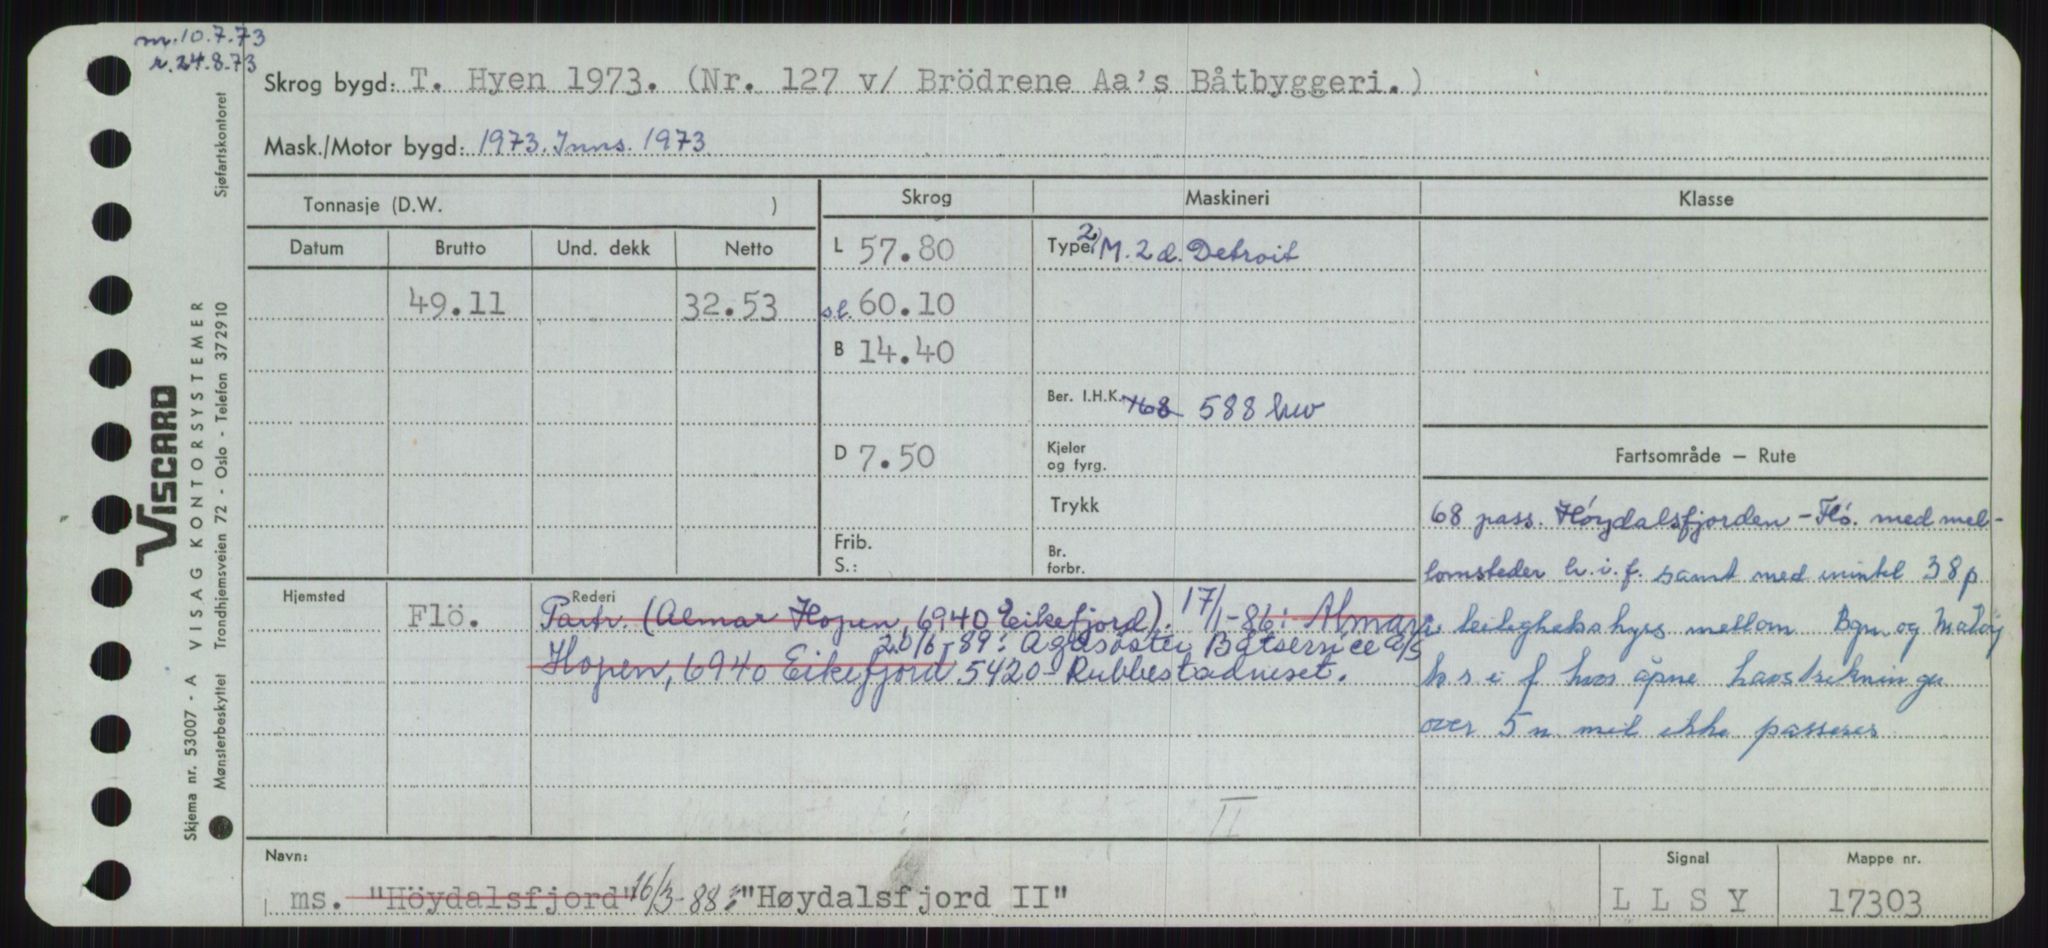 m. 10.7.73
r. 24.8.73
Skrog bygd: T. Hyen 1973. (Nr. 127 v/ Brödrene Aa's Båtbyggeri.)
Mask./Motor bygd: 1973. Inns. 1973
Tonnasje (D.W. )
Skrog
Maskineri
Klasse
Datum Brutto Und. dekk Netto
49.11 32.53
L 57.80
s.l. 60.10
B 14.40
D 7.50
Frib.
S.:
Type 2) M. 2 d. Detroit
Ber. I.H.K. 588 hw
Kjeler
og fyrg.
Trykk
Br.
forbr.
Fartsområde – Rute
68 pass. Høydalsfjorden – Flö. med mel-
lomsteder h.i.f. samt med inntil 38 p
leilighetskyss mellom Bgn og Måløy
h s i f hvor åpne havstrekninger
over 5 n mil ikke passeres
Hjemsted
Flö.
Rederi
Partr. (Almar Hopen, 6940 Eikefjord). 17/1-86: Almar
Hopen, 6940 Eikefjord 20/6-89: Ågasøster Båtservice a/s
5420 Rubbestadneset.
II
Navn:
ms. "Höydalsfjord" 16/3-88: "Høydalsfjord II"
Signal
L L S Y
Mappe nr.
17303
Sjøfartskontoret
VISCARD
VISAG KONTORSYSTEMER
Trondhjemsveien 72 - Oslo - Telefon 372910
Skjema nr. 53007 - A
Mønsterbeskyttet